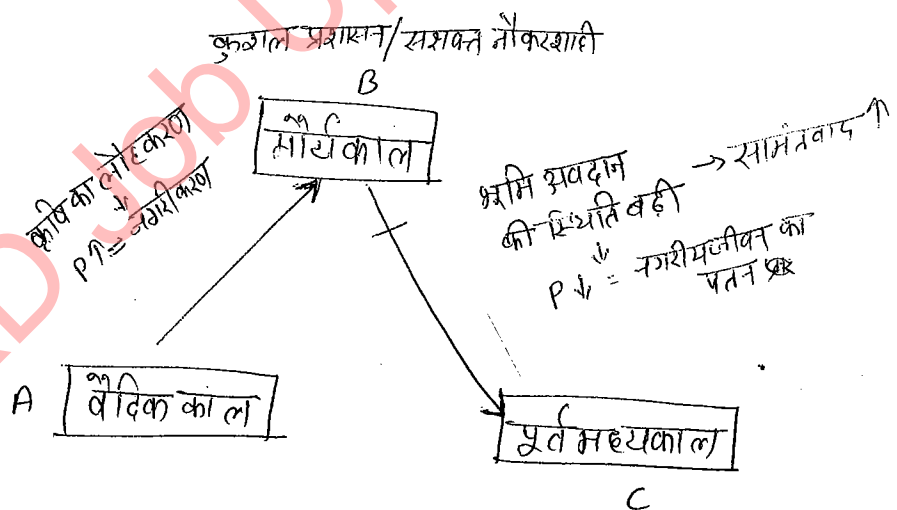 कुशल प्रशासन/सशक्त नौकरशाही
B
मौर्यकाल
कृषि का लौहकरण
↓
P↑ = नगरीकरण
भूमि अवदान → सामंतवाद ↑
की स्थिति बढ़ी
↓
P↓ = नगरीय जीवन का
पतन
A
वैदिक काल
पूर्व मध्यकाल
C
Job